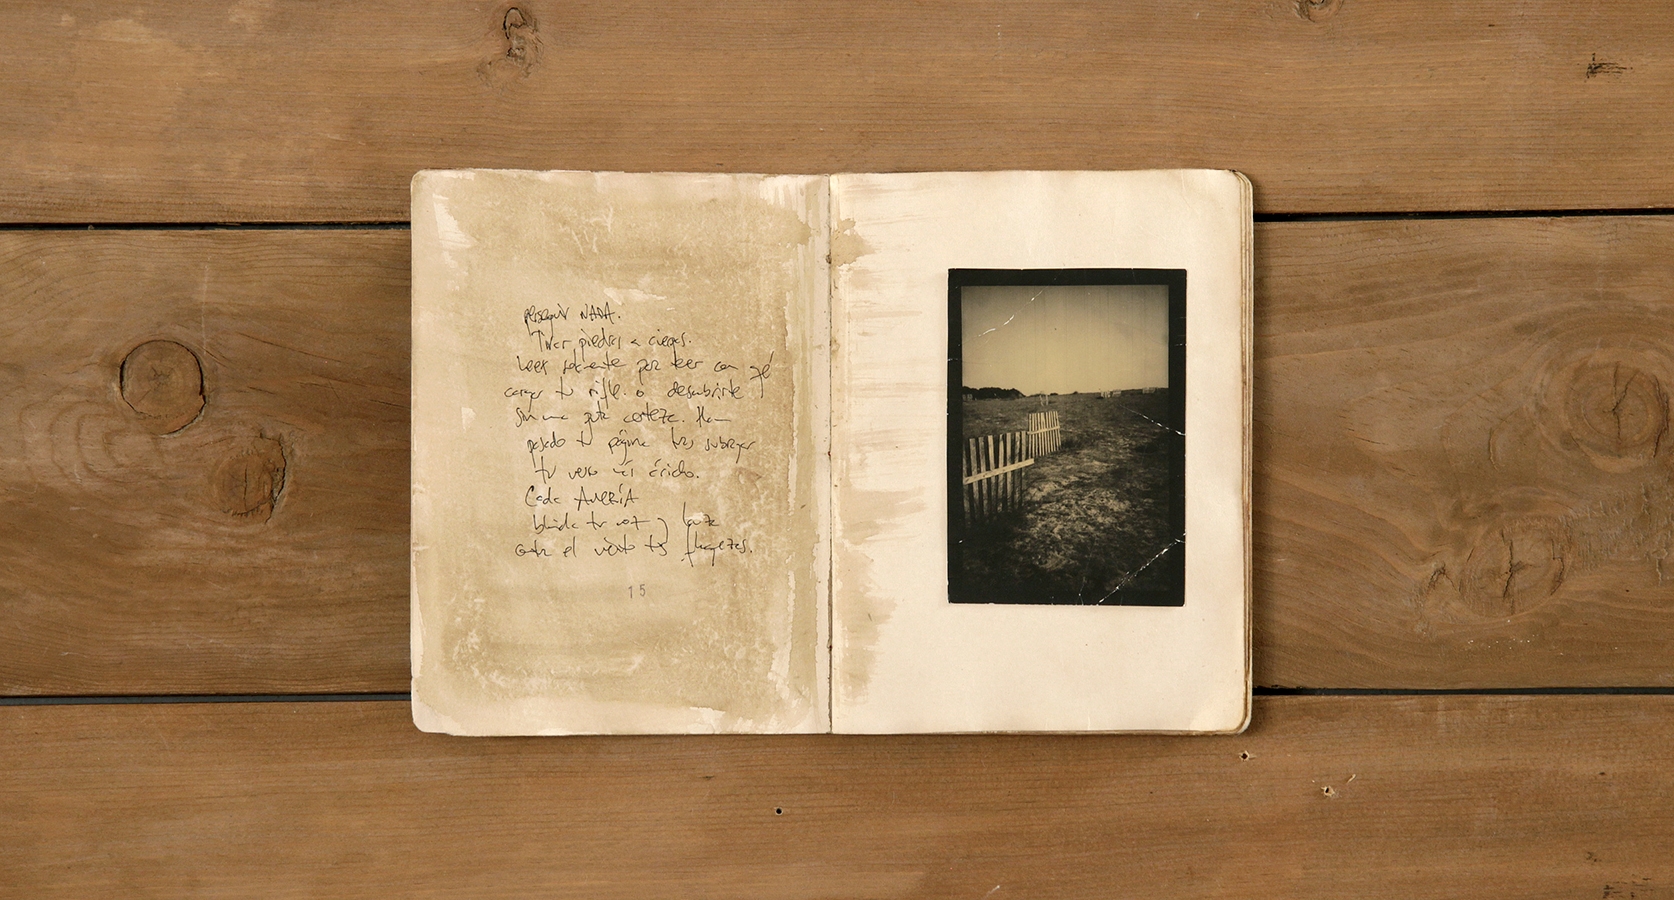 perseguir NADA.
Tirar piedras a ciegas.
Leer solamente por leer con qué
cargar tu rifle. o descubrirte
sin una gota corteza. Han
pasado tu página tras subrayar
tu verso más árido.
Cada AVERÍA
blinda tu voz y lanza
contra el viento tus
15